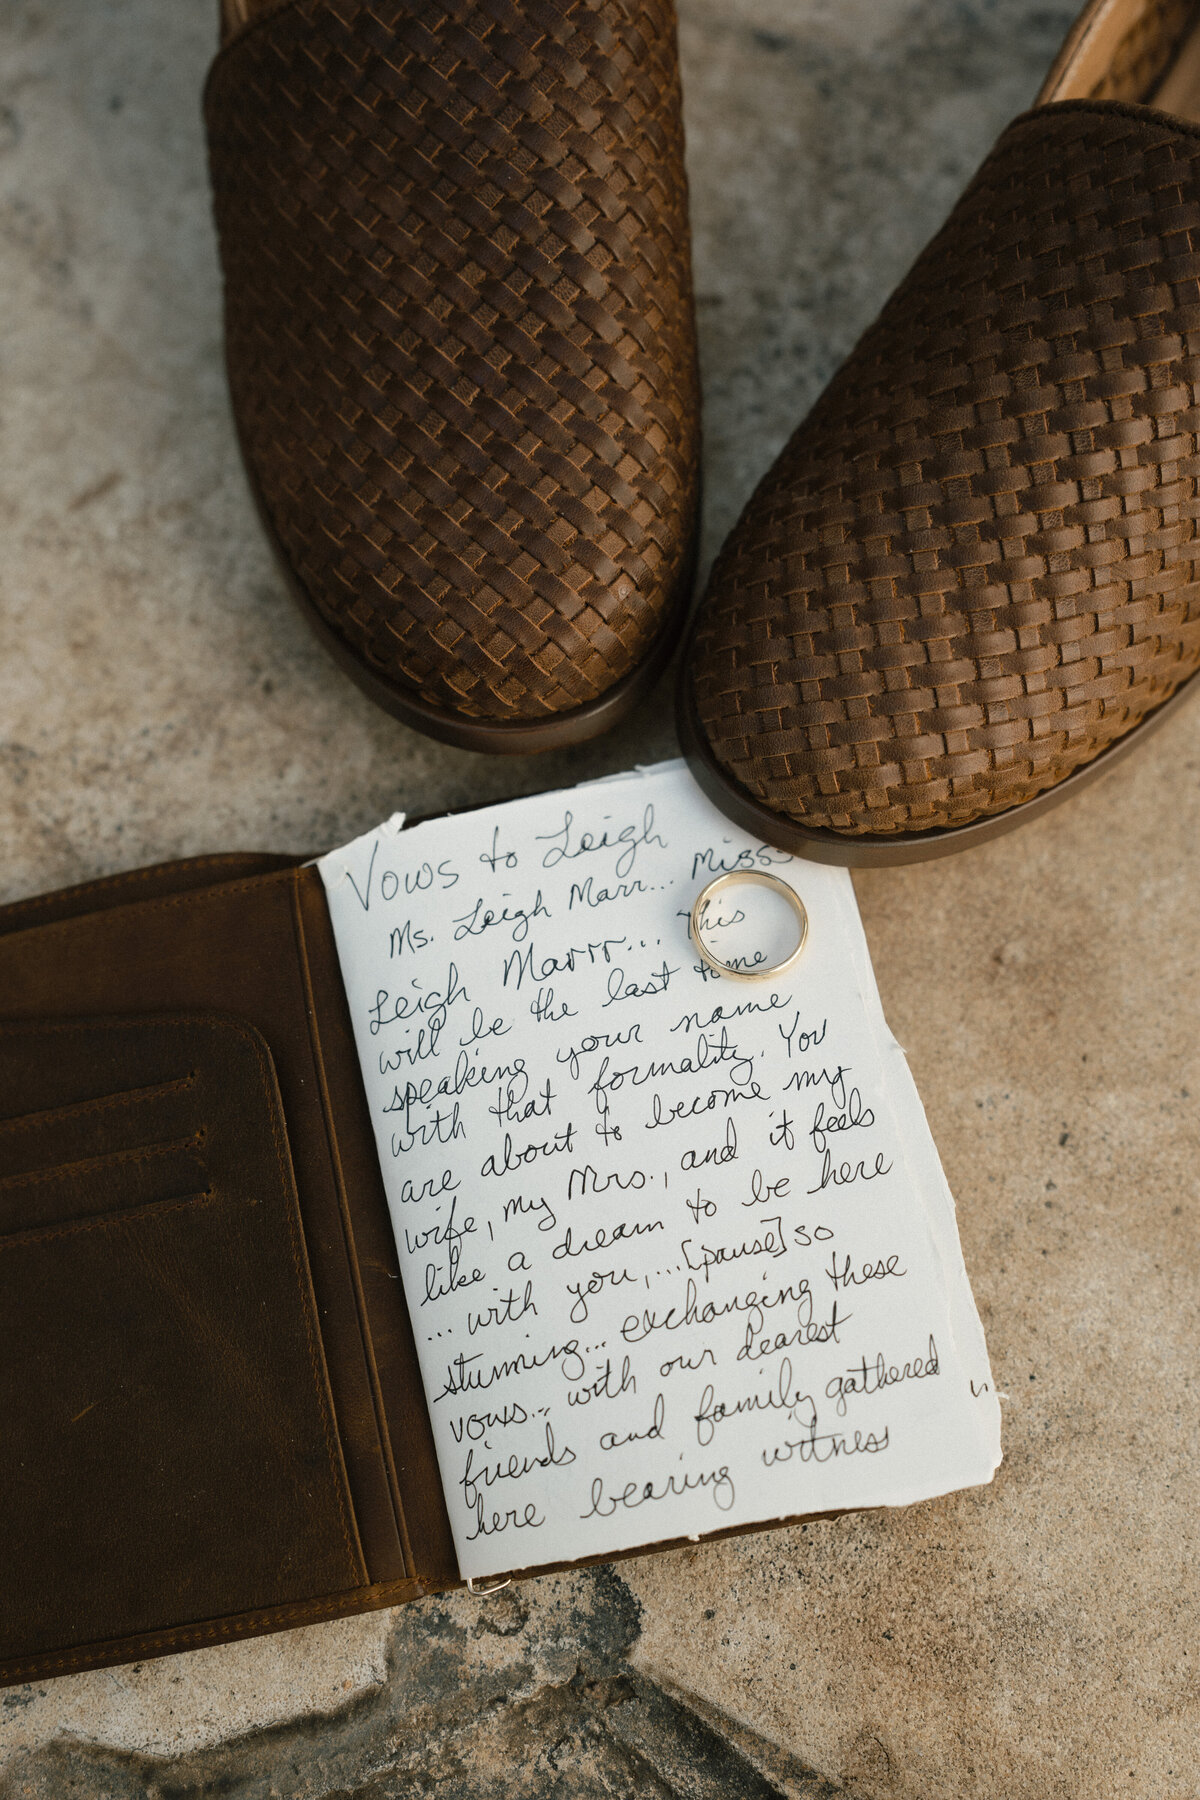 Vows to Leigh
Ms. Leigh Marr... Miss
Leigh Marrr... This
will be the last time
speaking your name
with that formality. You
are about to become my
wife, my Mrs., and it feels
like a dream to be here
... with you,...[pause] so
stunning... exchanging these
vows... with our dearest
friends and family gathered
here bearing witness